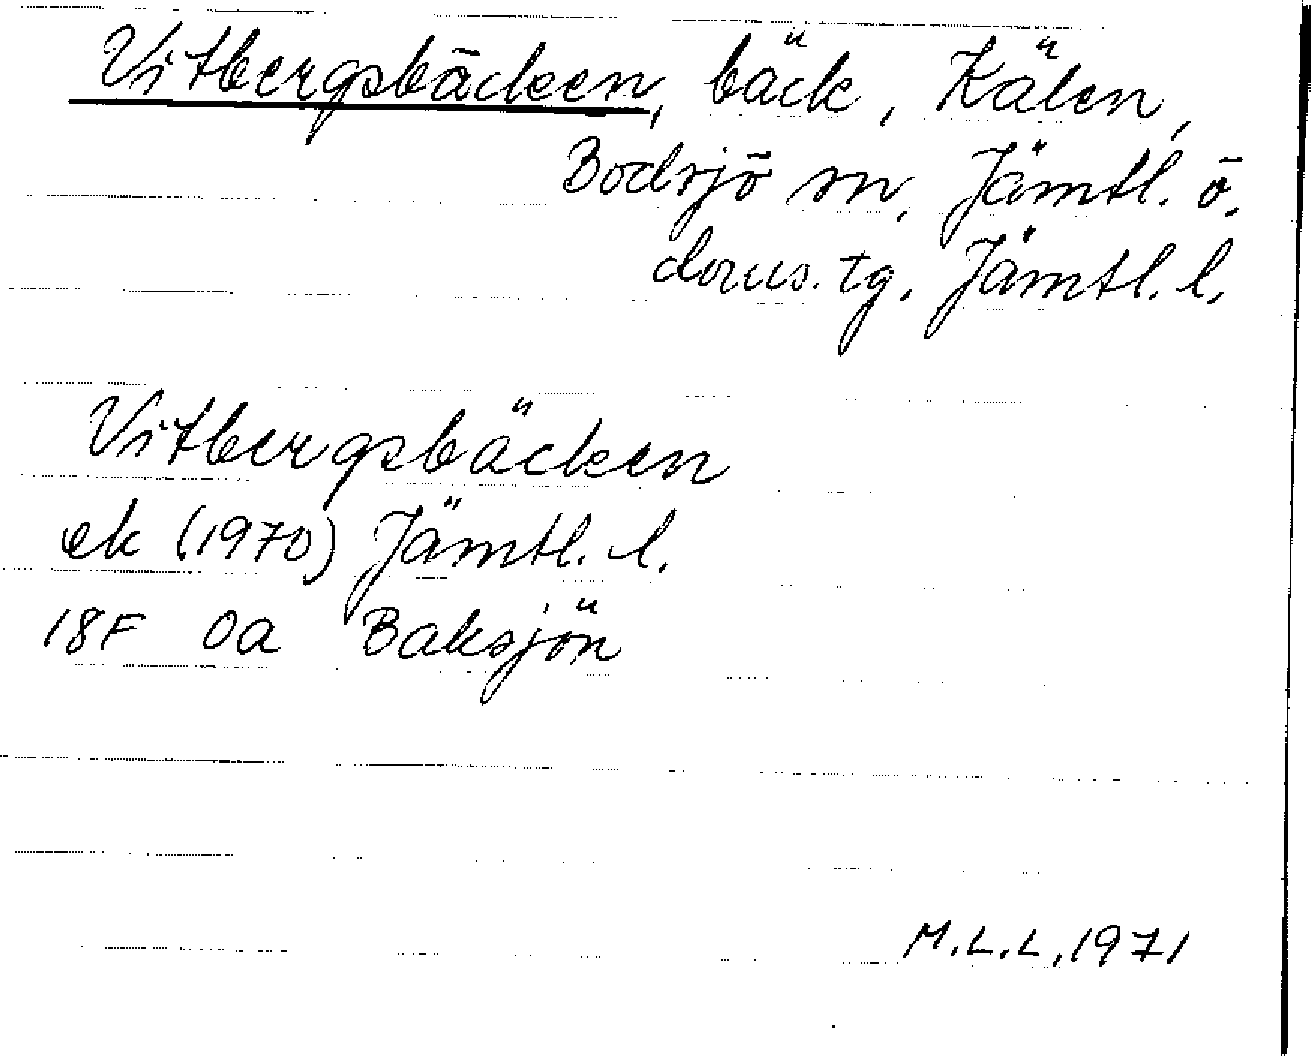 Vitbergsbäcken, bäck, Kälen,
Bodsjö sn, Jämtl. ö.
doms. tg. Jämtl. l.
Vitbergsbäcken
ek (1970) Jämtl. l.
18F 0a Baksjön
M.L.L, 1971